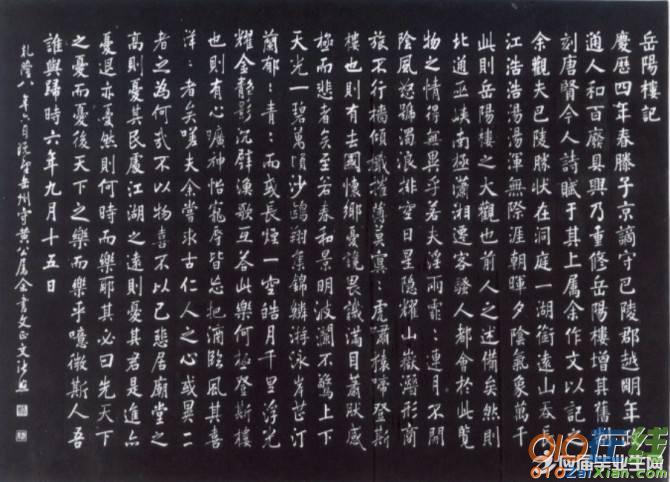 岳陽樓記
慶歷四年春滕子京謫守巴陵郡越明年政
通人和百廢具興乃重修岳陽樓增其舊制
刻唐賢今人詩賦于其上屬余作文以記之
余觀夫巴陵勝狀在洞庭一湖銜遠山吞長
江浩浩湯湯渾無際涯朝暉夕陰氣象萬千
此則岳陽樓之大觀也前人之述備矣然則
北通巫峽南極瀟湘遷客騷人都會於此覽
物之情得無異乎若夫淫雨霏:連月不開
陰風怒號濁浪排空日星隱耀山嶽潛形商
旅不行檣傾檝摧薄莫冥:虎嘯猿啼登斯
樓也則有去國懷鄉憂讒畏譏滿目蕭然感
極而悲者矣至若春和景明波瀾不驚上下
天光一碧萬頃沙鷗翔集錦鱗游泳岸芷汀
蘭郁:青:而或長煙一空皓月千里浮光
耀金靜影沉璧漁歌互答此樂何極登斯樓
也則有心曠神怡寵辱皆忘把酒臨風其喜
洋:者矣嗟夫余嘗求古仁人之心或異二
者之為何哉不以物喜不以己悲居廟堂之
高則憂其民處江湖之遠則憂其君是進亦
憂退亦憂然則何時而樂耶其必曰先天下
之憂而憂後天下之樂而樂乎噫微斯人吾
誰與歸時六年九月十五日
乾隆八年六月 岳州守黃公屬余書文正文 張照
010在线
应届毕业生网
010zaixian.com